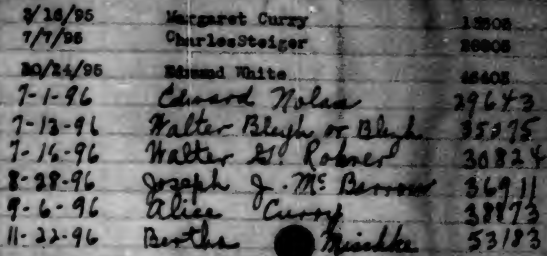 3/16/95 Margaret Curry
7/7/95 CharlesSteiger
10/24/95 Edmund White 46405
7-1-96 Edward Nolan 29643
7-13-96 Walter Bligh or Bluh 35075
7-16-96 Walter G. Rohner 30824
8-28-96 Joseph J. Mc Barrow 36911
9-6-96 Alice Curry 38873
11-22-96 Bertha Mischke 53183